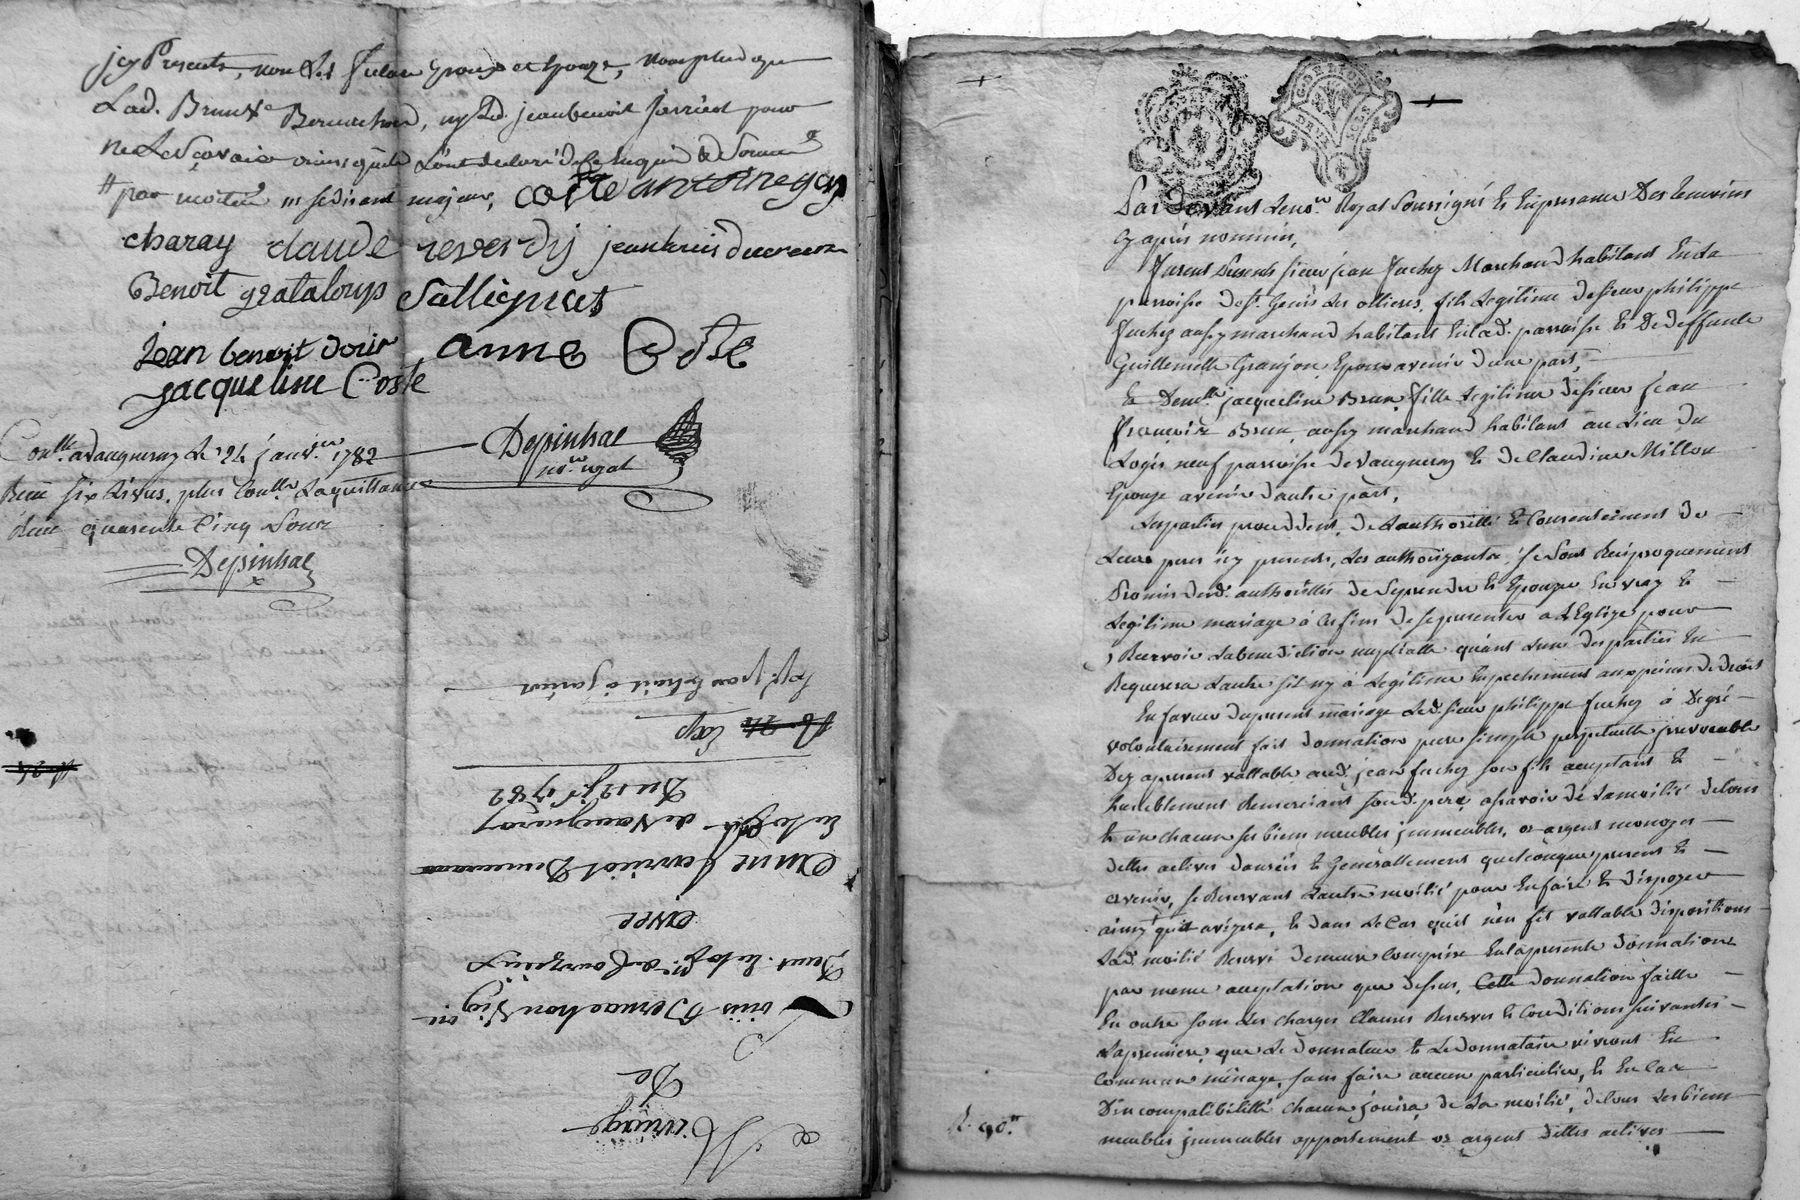 icy Presents, non led. futur Epoux et Epouze, non plus que
Lad. Brun Bernachon, ny led. jean benoit ferriere pour
ne le sçavoir ainsi qu'ils l'ont declaré de ce Enquis & Sommés
# par moitié m se disant majeur, coste antoine goy
charay claude reverdy jean louis ducreux
Benoit grataloup Sallignat
jean benoit doir, anne Coste
jacqueline Coste
Depinhac
no.re royal
Conllé. a vaugneray le 24 janv.er 1782
Receu six livres, plus Conllé. la quittance
Receu quarente Cinq Sous
Depinhac
Mariage
De
Louis Bernachon Vig.on
Dem.t en la p.sse de Courzieux
avec
Anne ferriere Demeurant
en la p.sse de Vaugneray
Du 12 j.er 1782
Exp
Exp. par Extrait
GEN DE LYON
Pardevant Le no.re Royal Soussigné & En presence Des temoins
Cy après nommés,
furent Presents sieur jean fuchez Marchand habitant En la
parroisse de S.t Genis les ollieres, fils Legitime de sieur philippe
fuchez aussy marchand habitant En lad. parroisse & De deffunte
Guillemette Granjon, Epoux avenir d'une part,
& Dem.lle jacqueline Brun, fille Legitime de sieur jean
François Brun, aussy marchand habitant au Lieu du
Logis neuf parroisse de Vaugneray & de Claudine Millon
Epouze avenir d'autre part.
Lesparties procedant, de L'authorité & Consentement de
Leurs peres icy presents, Les authorizants, se Sont Reciproquement
Promis sousd. authorités de Seprendre & Epouzer En vray &
Legitime mariage à Ces fins de se presenter a L'Eglize pour
y Recevoir La benediction nuptialle quant L'une des parties En
Requerera L'autre s'il n'y à Legitime Empechement aux peines de droits
En faveur du present mariage Led. sieur philippe fuchez à De gré
volontairement fait Donnation pure simple perpetuelle irrevocable
Dez apresent vallable aud. jean fuchez son fils acceptant &
humblement Remerciant sond. pere, asavoir de La moitié de tous
& un chacun ses biens meubles jmmeubles, or argent monoyés
dettes actives danrées & Generallement quelconque present &
avenir, se Reservant L'autre moitié pour En faire & disposer
ainsy qu'il avizera, & dans Le Cas qu'il n'en fit vallable dispositions
Lad. moitié Reservé Demeure Comprise En la presente donnation
par meme acceptation que dessus, Cette donnation faitte
En outre sous Les charges Clauses Reserves & Conditions suivantes
La premiere, que Le Donnateur & Le donnataire vivront En
Commun ménage, sans faire aucun particulier, & En Cas
D'incompatibilité chacun jouira, de La moitié, de tous Les biens
meubles jmmeubles appartement or argent dettes actives